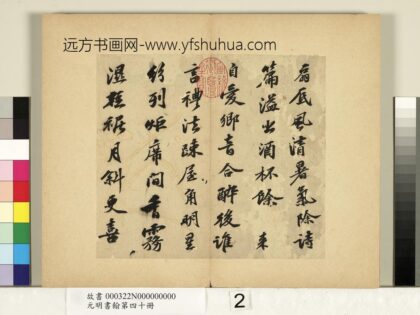 远方书画网-www.yfshuhua.com
扇底風清暑氣除詩
篇溢出酒杯餘
自愛鄉音合醉後誰
言禮法疎屋角明星
紛列炬席間香霧
濕輕裾月斜更喜
故書 000322N000000000
元明書翰第四十冊
2